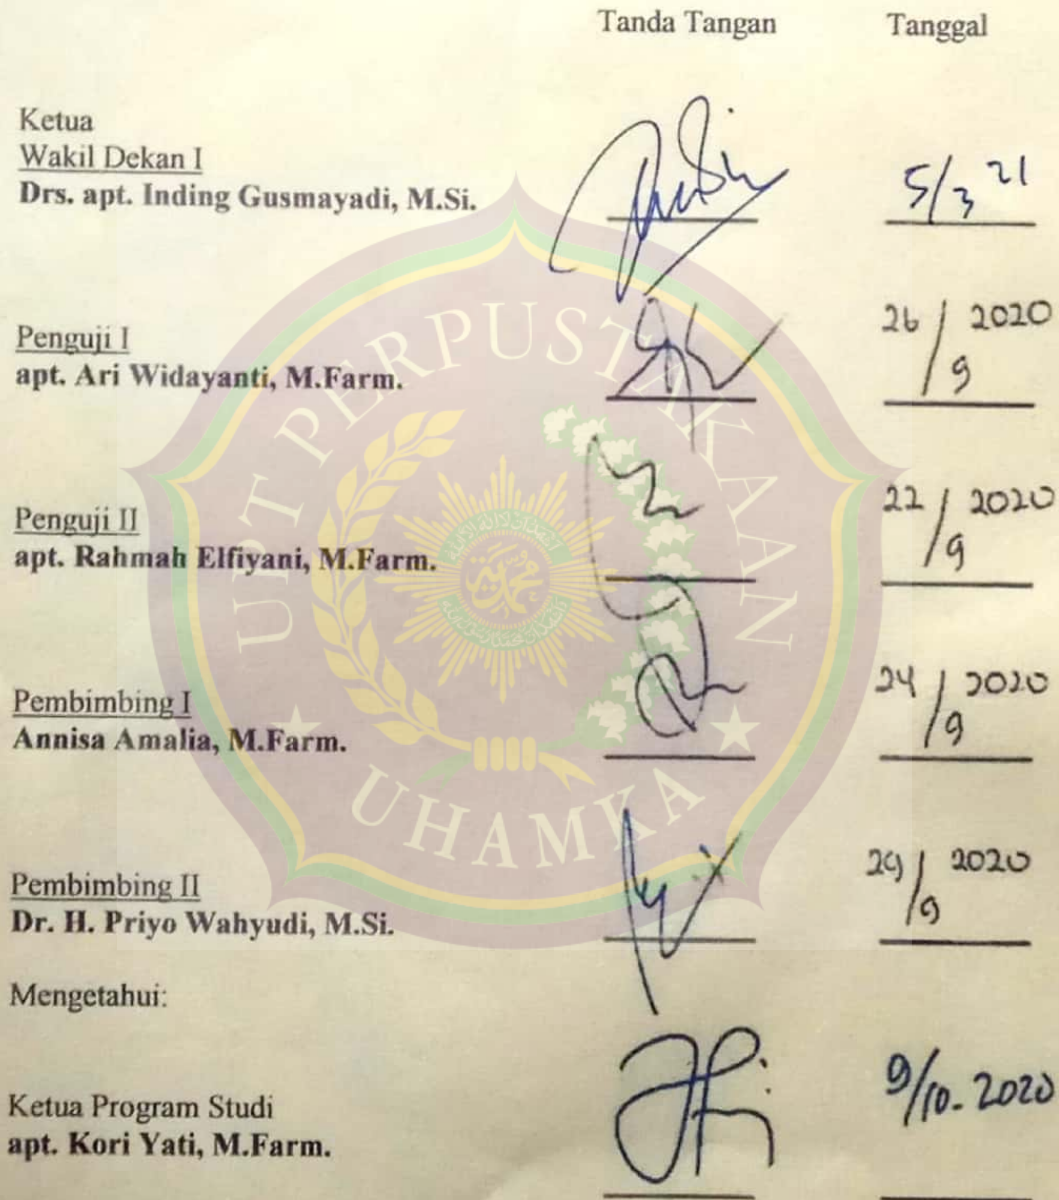 Tanda Tangan Tanggal
Ketua
Wakil Dekan I
Drs. apt. Inding Gusmayadi, M.Si.
5/3 21
Penguji I
apt. Ari Widayanti, M.Farm.
26/9 2020
Penguji II
apt. Rahmah Elfiyani, M.Farm.
22/9 2020
Pembimbing I
Annisa Amalia, M.Farm.
24/9 2020
Pembimbing II
Dr. H. Priyo Wahyudi, M.Si.
29/9 2020
Mengetahui:
Ketua Program Studi
apt. Kori Yati, M.Farm.
9/10. 2020
UPT PERPUSTAKAAN
UHAMKA